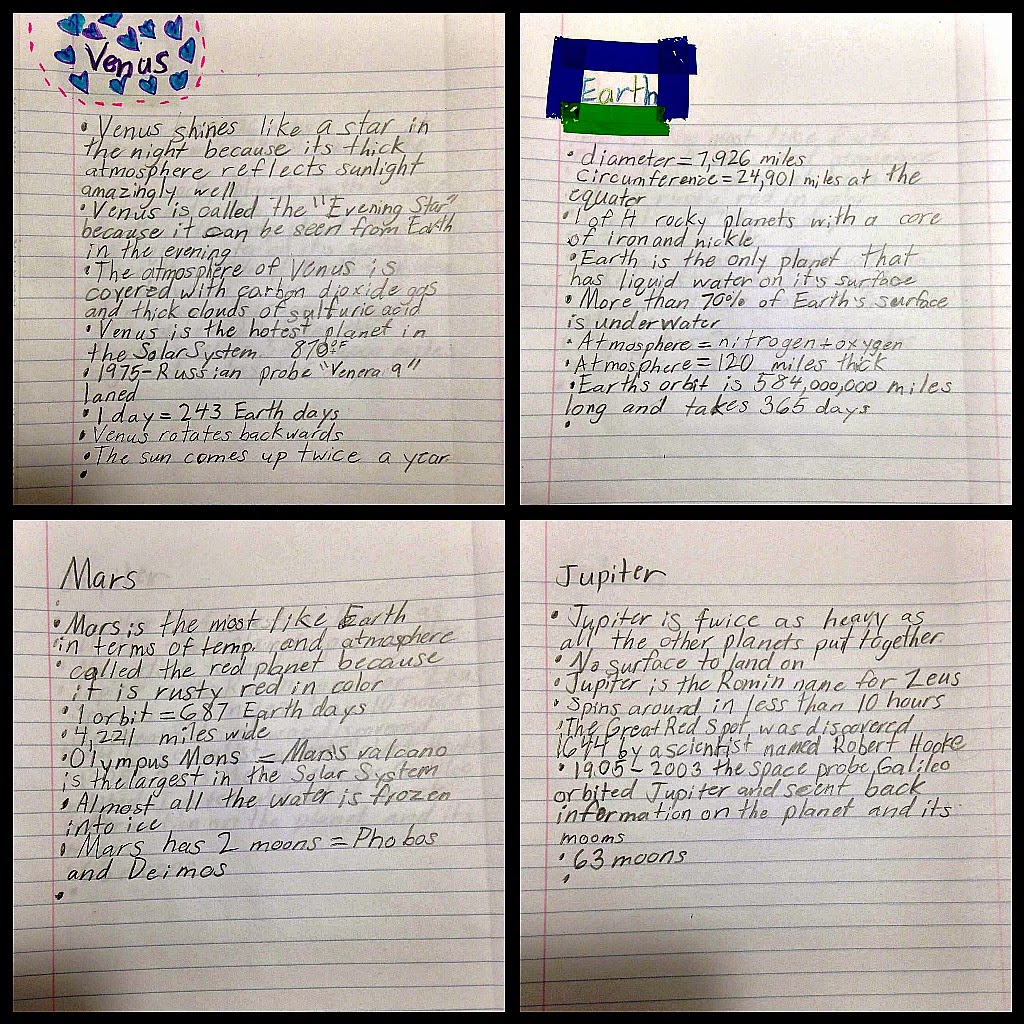 Venus
• Venus shines like a star in
the night because its thick
atmosphere reflects sunlight
amazingly well
• Venus is called the "Evening Star"
because it can be seen from Earth
in the evening
• The atmosphere of Venus is
covered with carbon dioxide gas
and thick clouds of sulfuric acid
• Venus is the hotest planet in
the Solar System 870°F
• 1975-Russian probe "Venera 9"
laned
• 1 day = 243 Earth days
• Venus rotates backwards
• The sun comes up twice a year
•
Earth
• diameter = 7,926 miles
circumference = 24,901 miles at the
equater
• 1 of 4 rocky planets with a core
of iron and nickle
• Earth is the only planet that
has liquid water on it's surface
• More than 70% of Earth's surface
is underwater
• Atmosphere = nitrogen + oxygen
• Atmosphere = 120 miles thick
• Earths orbit is 584,000,000 miles
long and takes 365 days
•
Mars
• Mars is the most like Earth
in terms of temp. and atmosphere
• called the red planet because
it is rusty red in color
• 1 orbit = 687 Earth days
• 4,221 miles wide
• Olympus Mons = Mars's valcano
is the largest in the Solar System
• Almost all the water is frozen
into ice
• Mars has 2 moons = Phobos
and Deimos
•
Jupiter
• Jupiter is twice as heavy as
all the other planets put together
• No surface to land on
• Jupiter is the Romin name for Zeus
• Spins around in less than 10 hours
• The Great Red Spot was discovered
1644 by a scientist named Robert Hooke
• 1905-2003 the space probe Galileo
orbited Jupiter and seent back
information on the planet and its
mooms
• 63 moons
•